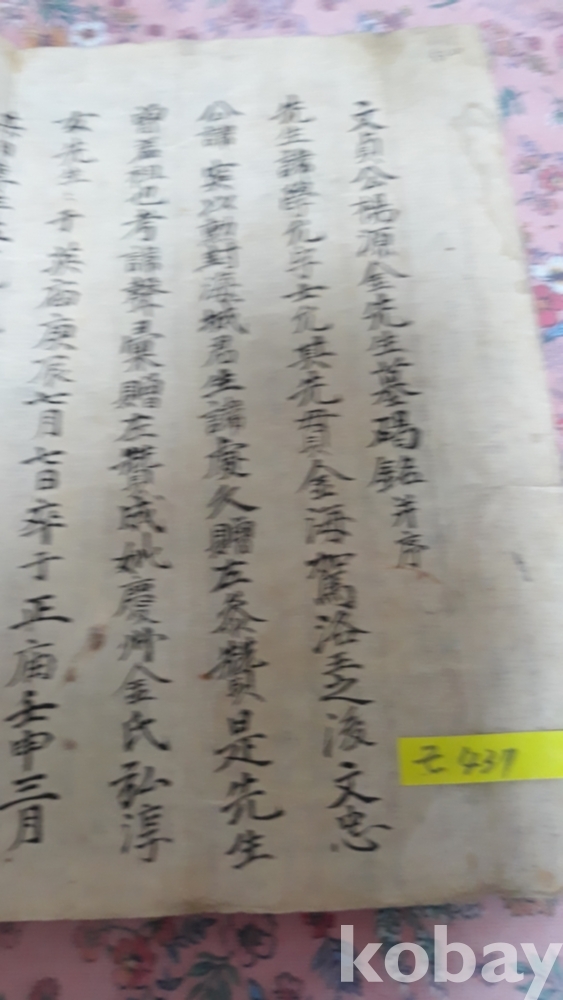 文貞公楊原金先生墓碣銘 并序
先生諱學九字士九其先貫金海駕洛王之後文忠
公諱 以勳封海城君生諱慶久贈左叅贊是先生
曾孟祖也考諱聲 贈左贊成妣慶州金氏弘淳
女先生 于英庙庚辰七月七日卒于正庙壬申三月
乇 437
kobay